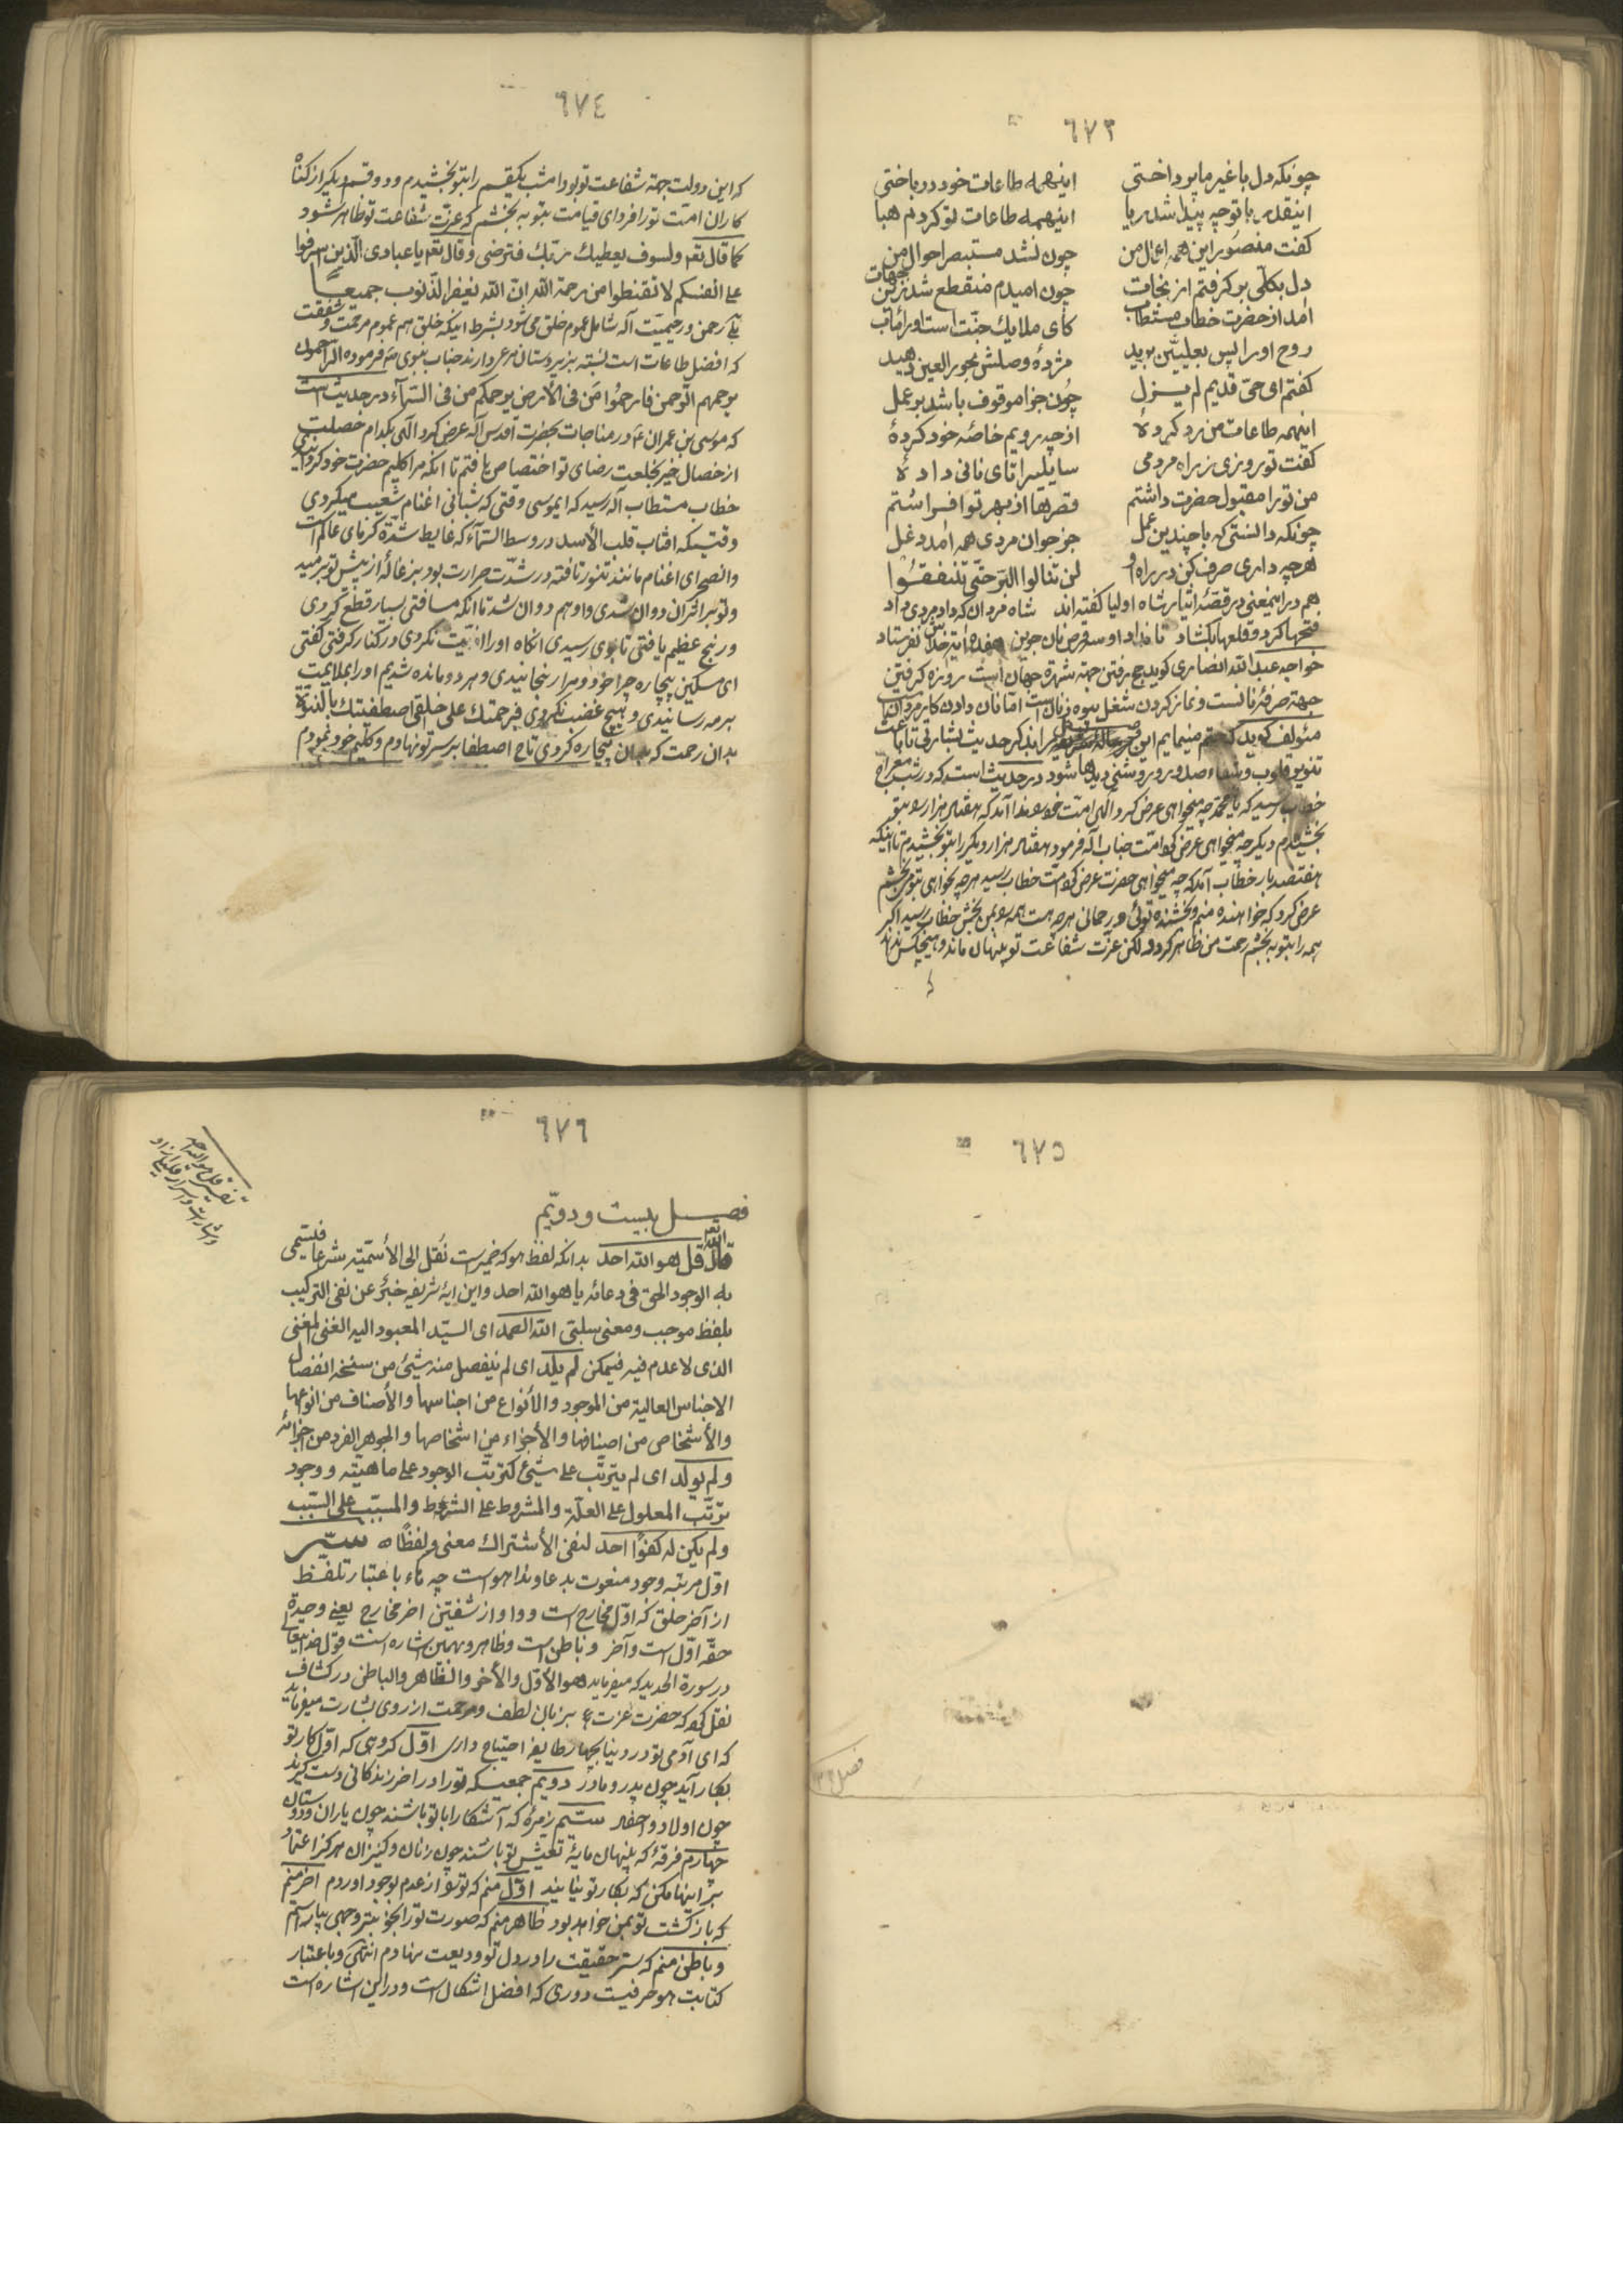 ٦٧٣
چونکه دل با غیر ما پرداختی اینهمه طاعات خود در باختی
اینقدر با تو چه پیدا شد ریا اینهمه طاعات تو کردم هبا
کفت منصور این همه اعمال من چون نشد مستبصر احوال من
دل بکلّی بر کرفتم از نجات چون امیدم منقطع شد زین جهات
امد از حضرت خطاب مستطاب کای ملایک جنّت است او را مئاب
روح او را پس بعلیّین برید مژدهٔ وصلش بحور العین دهید
کفتم ای حی قدیم لم یزل چون جزا موقوف باشد بر عمل
اینهمه طاعات من رد کردهٔ از چه رویم خاصّه خود کردهٔ
کفت تو روزی ز راه مردمی سایلیرا تای نانی دادهٔ
من تو را مقبول حضرت داشتم قصرها از بهر تو افراشتم
چونکه دانستی که با چندین عمل جز جوان مردی همه امد دغل
هرچه داری صرف کن در راه او لن تنالوا البرّ حتّی تنفقوا
هم در اینمعنی در قصّه ایثار شاه اولیا کفته اند شاه مردان که داد مردی داد
فتحها کرد و قلعها بکشاد تا نداد او سه قرص نان جوین هفده ایت خداش نفرستاد
خواجه عبد الله انصاری کوید حج رفتن جهة شهرة جهان است روزه کرفتن
جهة صرفهٔ نانست و نماز کردن شغل بیوه زنان است امّا نان دادن کار مردان است
مئولف کوید که ختم مینمایم این را بذکر حدیث بشارتی تا باعث
تنویر قلوب و شفاء صدور و روشنی دیدها شود در حدیث است که در شب معراج
خطاب رسید که یا محمّد چه میخواهی عرض کرد الهی امّت خود ندا آمد که هفتاد هزار بتو
بخشیدم دیکر چه میخواهی عرض کرد امّت جناب اله فرمود هفتاد هزار دیکر را بتو بخشیدم تا اینکه
هفتصد بار خطاب آمد که چه میخواهی حضرت عرض کرد امّت خطاب رسید هرچه بخواهی بتو میبخشم
عرض کرد که خواهنده منم و بخشنده توئی و رحمانی هرچه هست همه بمن بخش خطاب رسید اکر
همه را بتو ببخشم رحمت من ظاهر کردد لکن عزّت شفاعت تو پنهان ماند و هیچکس نداند
٦٧٤
که این دولت جهة شفاعت تو بود امشب یکقسم را بتو بخشیدم و دو قسم دیکر از کناه
کاران امّت تو را فردای قیامت بتو ببخشم که عزّت شفاعت تو ظاهر شود
کما قال تعه ولسوف یعطیك ربّك فترضی وقال تعه یا عبادی الّذین اسرفوا
علی انفسکم لا تقنطوا من رحمة الله ان الله یغفر الذّنوب جمیعاً
بلی رحمن و رحیمیّت اله شامل عموم خلق می شود بشرط اینکه خلق هم عموم مرحمت و شفقت
که افضل طاعات است نسبة بزیردستان مرعی دارند جناب نبوی ص فرموده الرّاحمون
یرحمهم الرّحمن فارحموا من فی الأرض یرحمکم من فی السّمآء در حدیث است
که موسی بن عمران ع در مناجات بحضرت اقدس اله عرض کرد الهی بکدام خصلت
از خصال خیر بخلعت رضای تو اختصاص یافتم تا انکه مرا کلیم حضرت خود کردانیدی
خطاب مستطاب اله رسید که ایموسی وقتی که شبانی اغنام شعیب میکردی
وقتیکه افتاب قلب الأسد در وسط السّمآء که غایط شدّة کرمای عالم است
و انصحرای اغنام مانند تنور تافته در شدّت حرارت بود بزغالهٔ از پیش تو برمید
و تو براثر ان دوان شدی و او هم دوان شد تا انکه مسافتی بسیار قطع کردی
و رنج عظیم یافتی تا بوی رسیدی انکاه او را اذیّت نکردی در کنار کرفتی کفتی
ای مسکین بیچاره چرا خود و مرا رنجانیدی و هر دو مانده شدیم او را بملایمت
برمه رسانیدی و هیچ غضب نکردی فبرحمتك علی خلقی اصطفیتك بالنبوّة
بدان رحمت که بدان بیچاره کردی تاج اصطفا بر سر تو نهادم و کلیم خود نمودم
٦٧٥
فصل ٢٢
٦٧٦
تفسیر قل هو الله احد
فصل بیست و دویّم
قال الله تعه قل هو الله احد بدانکه لفظ هو که ضمیرست نُقل الی الأسمیّته شرعا فیسمی
به الوجود الحق فی دعائه یا هو الله احد و این ایهٔ شریفه خبرٌ عن نفی الترکیب
بلفظ موجب و معنی سلبتی الله الصمد ای السیّد المعبود الیه الغنی المغنی
الذی لا عدم فیه فیمکن لم یلد ای لم ینفصل منه شیئ من سنخه انفصال
الاجناس العالیة من الموجود والأنواع من اجناسها والأصناف من انواعها
والأشخاص من اصنافها والأجزاء من اشخاصها والجوهر الفرد من اجزائه
ولم یولد ای لم یترتّب علی شیئ کترتّب الوجود علی ماهیّته و وجود
ترتّب المعلول علی العلّة والمشروط علی الشرط والمسبّب علی السّبب
ولم یکن له کفوًا احد لنفی الأشتراك معنی ولفظًا ه سرّ
اوّل مرتبه وجود منعوت بدعا و ندا هو است چه هاء باعتبار تلفّظ
از آخر حلق که اوّل مخارج است و واو از شفتین اخر مخارج یعنی وحیدة
حقّه اوّل است و آخر و باطن است و ظاهر و بهمین اشاره است قول خدایتعالی
در سورة الحدید که میفرماید هو الأوّل والأخر والظّاهر والباطن در کشاف
نقل کرده که حضرت عزت بزبان لطف و مرحمت از روی بشارت میفرماید
که ای آدمی تو در دنیا بچهار طایفه احتیاج داری اوّل کروهی که اوّل کار تو
بکار آید چون پدر و مادر دویّم جمعیکه تو را در اخر زندکانی دست کیرند
چون اولاد و احفاد سیّم زمرهٔ که آشکارا با تو باشند چون یاران و دوستان
چهارم فرقهٔ که پنهان مایهٔ تعیّش تو باشند چون زنان و کنیزان هرکز اعتماد
بر اینها مکن که بکار تو نیایند اوّل منم که تو را از عدم بوجود اوردم اخر منم
که بازکشت تو بمن خواهد بود ظاهر منم که صورت تو را بخوبتر وجهی بیاراستم
و باطن منم که سرّ حقیقت را در دل تو ودیعت نهادم انتهی و باعتبار
کتابت هو حرفیست دوری که افضل اشکال است و در این اشاره است